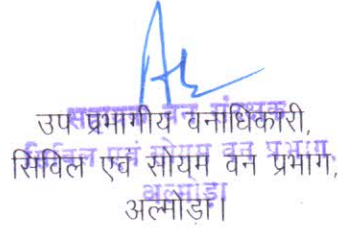 उप प्रभागीय वनाधिकारी,
सिविल एवं सोयम वन प्रभाग,
अल्मोड़ा।